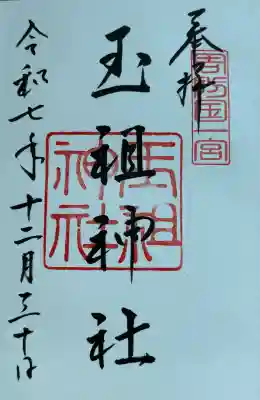 奉拝
周防国一宮
玉祖神社
玉祖神社
令和七年十二月三十日